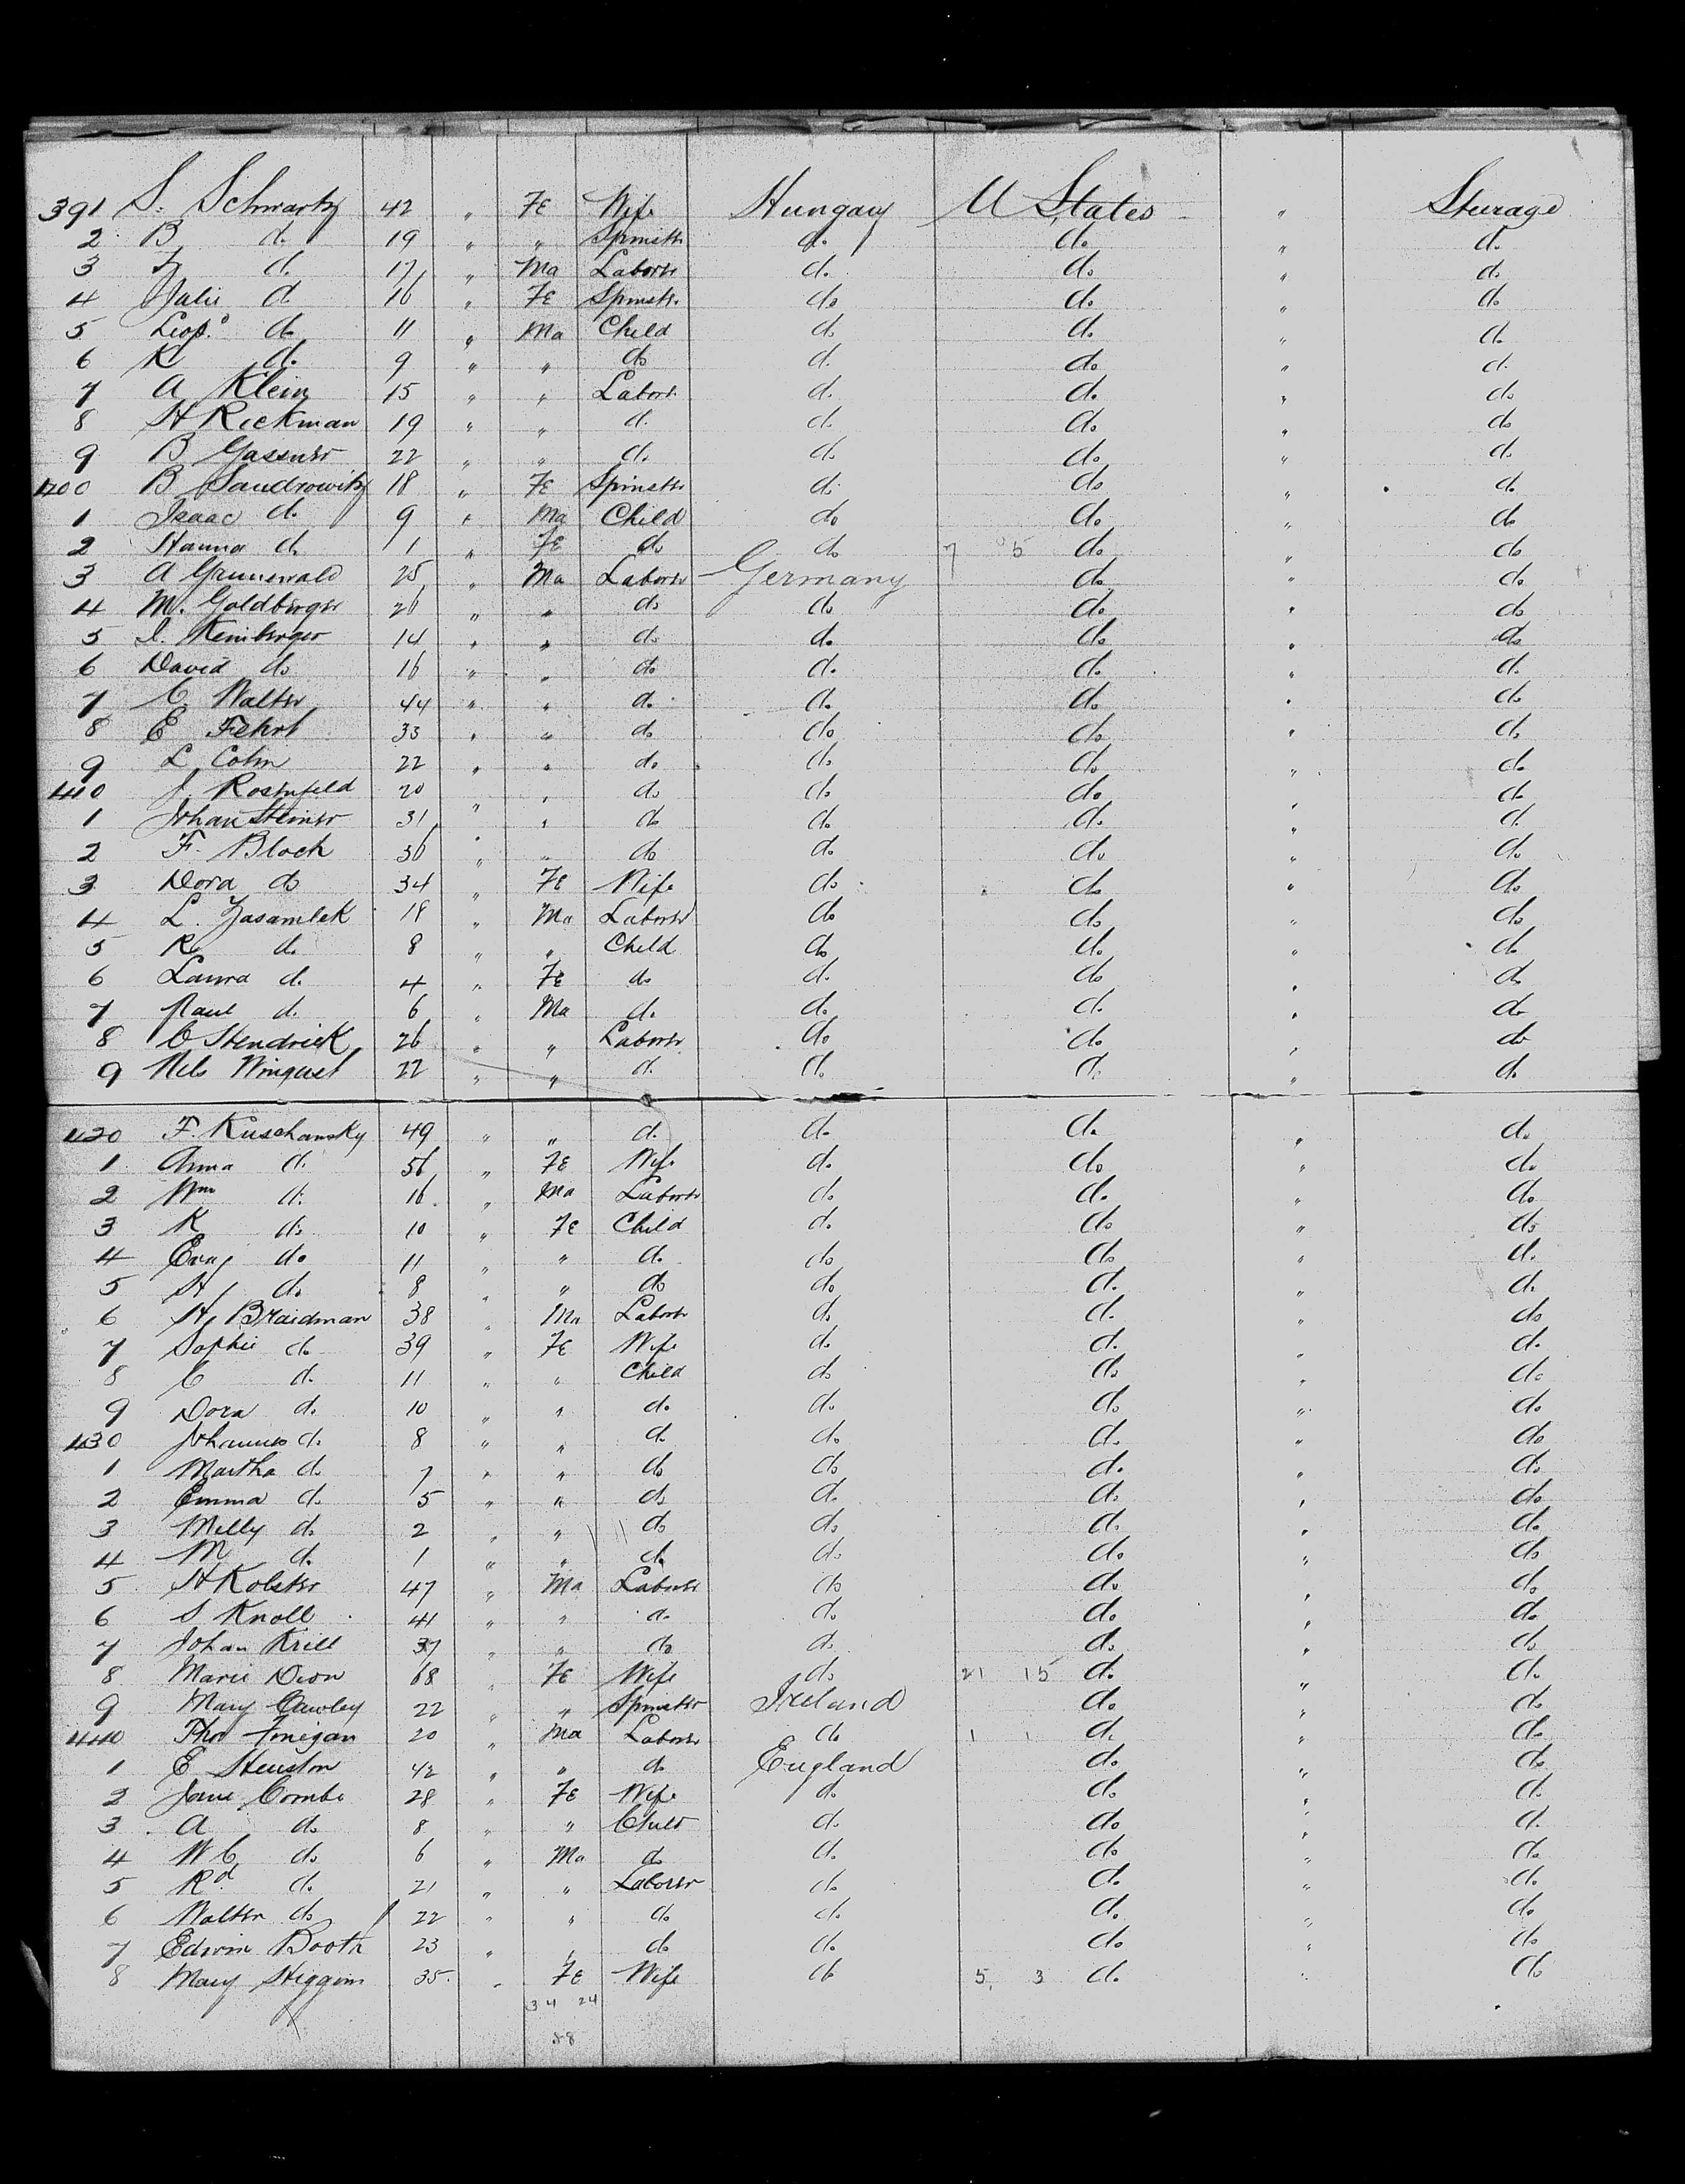 391 S. Schwartz 42 " Fe Wife Hungary U States " Steerage
2 B do. 19 " " Spinster do. do. " do.
3 do. 17 " Ma Laborer do. do. " do.
4 Julie do 16 " Fe Spinster do do. " do
5 Leopd. do 11 " Ma Child do do. " do.
6 K do. 9 " " do do. do. " do.
7 A Klein 15 " " Labor. do. do. " do
8 H Rickman 19 " " do. do. do. " do
9 B Gassner 22 " " do. do. do. " do.
400 B Sandrowitz 18 " Fe Spinster do. do " do.
1 Isaac do. 9 " Ma Child do do. " do
2 Hanna do. 1 " Fe do do 7 5 do. " do
3 A Grunewald 25 " Ma Laborer Germany do. " do.
4 M. Goldberger 26 " " do do do. " do
5 Kemberger 14 " " do. do. do. " do
6 David do. 16 " " do do. do. " do.
7 C Walter 44 " " do. do. do. " do.
8 E Fehrt 33 " " do do do " do.
9 L Cohn 22 " " do. do. do " do.
410 J. Rosenfeld 20 " " do do. do " do.
1 Johan Steiner 31 " " do do. do. " do.
2 F. Block 36 " " do do. do. " do.
3 Dora do 34 " Fe Wife do. do " do.
4 L. 18 " Ma Laborer do do " do.
5 R do. 8 " " Child do do. " do.
6 Laura do. 4 " Fe do do. do " do.
7 Paul do. 6 " Ma do. do. do. " do.
8 C Hendrick 26 " " Laborer do do " do
9 Nels Winquist 22 " " do. do. do. " do.
420 F. Kuschansky 49 " " do. do. do. " do.
1 Anna do. 56 " Fe Wife do. do " do.
2 Wm do. 16. " Ma Laborer do do. " do.
3 K do. 10 " Fe Child do. do " do
4 Eva do 11 " " do. do do " do.
5 H do. 8 " " do do do. " do.
6 H. Braidman 38 " Ma Laborer do. do. " do
7 Sophie do. 39 " Fe Wife do. do. " do.
8 C do. 11 " " Child do do " do.
9 Dora do. 10 " " do. do. do. " do.
430 Johannes do. 8 " " do. do. do. " do
1 Martha do. 7 " " do do do. " do.
2 Emma do. 5 " " do. do. do. " do.
3 Milly do. 2 " " do do. do. " do.
4 M do. 1 " " do. do. do. " do.
5 H Kolster 47 " Ma Laborer do do. " do.
6 S Knoll 41 " " do. do. do. " do.
7 Johan Krill 37 " " do do. do. " do.
8 Marie Dion 68 " Fe Wife do. 21 15 do. " do.
9 Mary Cawley 22 " " Spinster Ireland do. " do.
440 Thos Finigan 20 " Ma Laborer do. 1 1 do. " do.
1 E Heuston 42 " " do England do. " do.
2 Jane Combe 28 " Fe Wife do. do. " do.
3 A do. 8 " " Child do. do. " do.
4 W C do. 6 " Ma do do. do " do.
5 Rd. do. 21 " " Laborer do do. " do.
6 Walter do 22 " " do do. do. " do.
7 Edwin Booth 23 " " do do. do " do
8 Mary Higgins 35. " Fe Wife do 5 3 do. " do
34 24
58